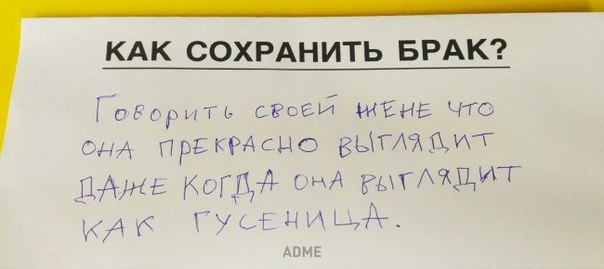 КАК СОХРАНИТЬ БРАК?
Говорить своей жене что
она прекрасно выглядит
даже когда она выглядит
как гусеница.
ADME